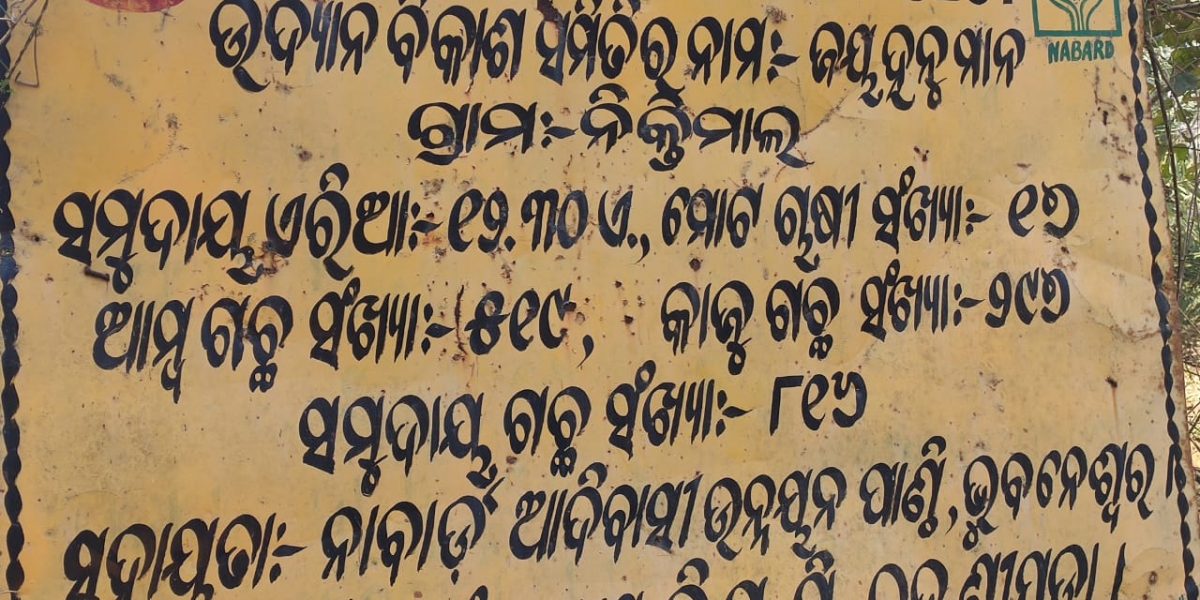 NABARD
ଉଦ୍ୟାନ ବିକାଶ ସମିତିର ନାମ:- ଜୟହନୁମାନ
ଗ୍ରାମ:- ନିକ୍ତିମାଲ
ସମୁଦାୟ ଏରିଆ:- ୧୨.୩୦ ଏ., ମୋଟ ଚାଷୀ ସଂଖ୍ୟା:- ୧୬
ଆମ୍ବ ଗଛ ସଂଖ୍ୟା:- ୫୧୯, କାଜୁ ଗଛ ସଂଖ୍ୟା:- ୨୯୬
ସମୁଦାୟ ଗଛ ସଂଖ୍ୟା:- ୮୧୫
ସହାୟତା:- ନାବାର୍ଡ଼ ଆଦିବାସୀ ଉନ୍ନୟନ ପାଣ୍ଠି, ଭୁବନେଶ୍ୱର ।